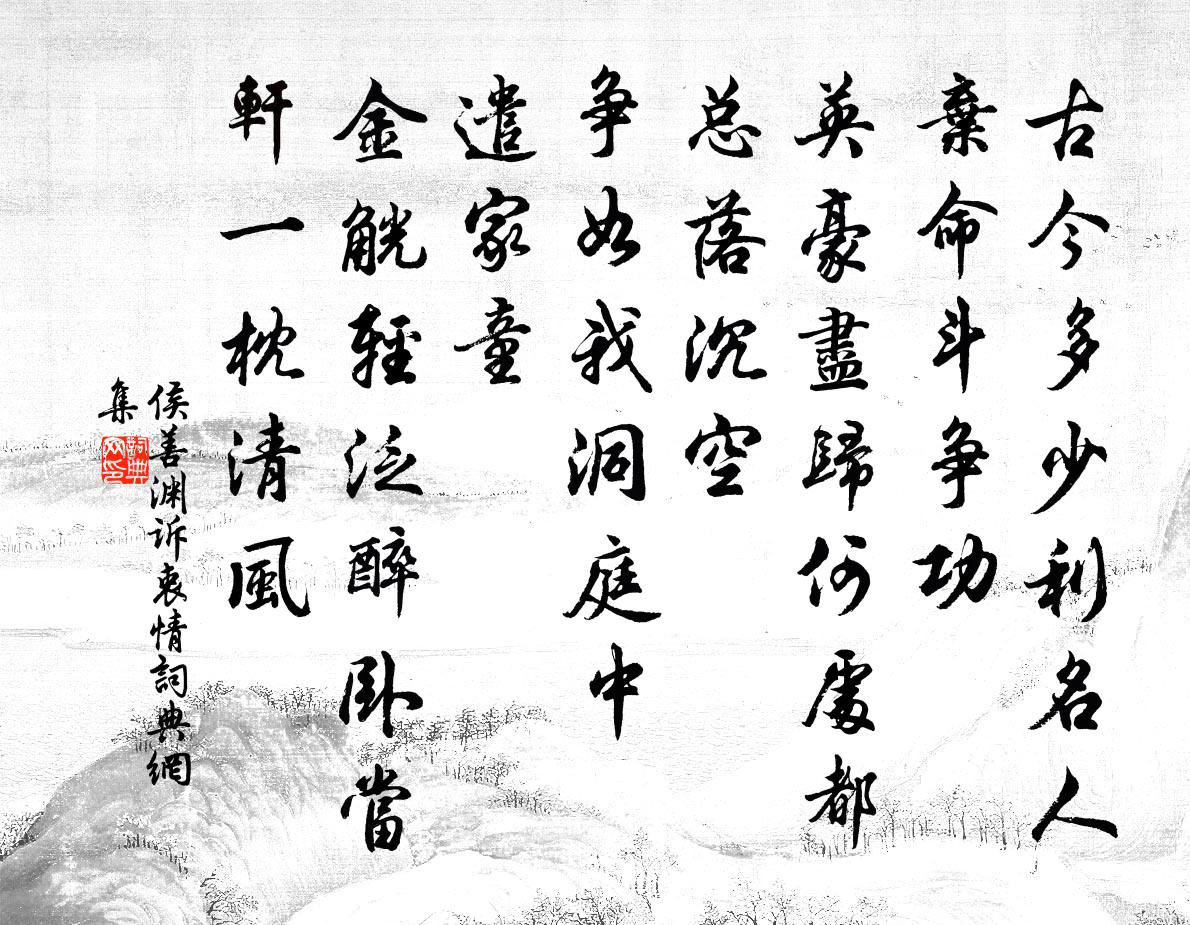 古今多少利名人
棄命斗争功
英豪盡歸何處都
总落沉空
争如我洞庭中
遣家童
金觥輕泛醉卧當
軒一枕清風
侯善渊诉衷情詞典網
集
詞典网印